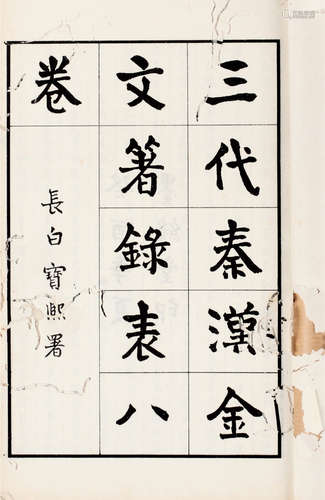 三代秦漢金
文箸錄表八
卷
長白寶熙署